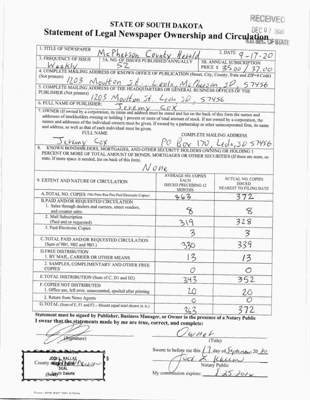 RECEIVED
STATE OF SOUTH DAKOTA
Statement of Legal Newspaper Ownership and Circulation
1. TITLE OF NEWSPAPER
McPherson County Herald
2. DATE
9-17-20
3. FREQUENCY OF ISSUE
Weekly
3A. NO. OF ISSUES PUBLISHED ANNUALLY
52
3B. ANNUAL SUBSCRIPTION
PRICE $
4. COMPLETE MAILING ADDRESS OF KNOWN OFFICE OF PUBLICATION (Street, City, County, State and ZIP+4 Code)
(Not printers)
1205 Moulton St. Leola McPherson SD 57456
5. COMPLETE MAILING ADDRESS OF THE HEADQUARTERS OF GENERAL BUSINESS OFFICES OF THE
PUBLISHER (Not printers)
1205 Moulton St. Leola, SD 57456
6. FULL NAME OF PUBLISHER:
Jeremy Cox
7. OWNER (If owned by a corporation, its name and address must be stated and list on the back of this form the names and
addresses of stockholders owning or holding 1 percent or more of total amount of stock. If not owned by a corporation, the
names and addresses of the individual owners must be given. If owned by a partnership or other unincorporated firm, its name
and address, as well as that of each individual must be given.
FULL NAME
COMPLETE MAILING ADDRESS
Jeremy Cox
PO Box 170, Leola, SD 57456
8. KNOWN BONDHOLDERS, MORTGAGEES, AND OTHER SECURITY HOLDERS OWNING OR HOLDING 1
PERCENT OR MORE OF TOTAL AMOUNT OF BONDS, MORTGAGES OR OTHER SECURITIES (If there are none, so
state. If more space is needed, list on back of this form.
None
9. EXTENT AND NATURE OF CIRCULATION
AVERAGE NO. COPIES
EACH
ISSUED PRECEDING 12
MONTHS
ACTUAL NO. COPIES
ISSUED
NEAREST TO FILING DATE
A. TOTAL NO. COPIES
363
372
B. PAID AND/OR REQUESTED CIRCULATION
1. Sales through dealers and carriers, street vendors,
and counter sales.
8
8
2. Mail Subscription
(Paid and/or requested)
319
328
3. Paid Electronic Copies
3
3
C. TOTAL PAID AND/OR REQUESTED CIRCULATION
330
339
D. FREE DISTRIBUTION
1. BY MAIL, CARRIER OR OTHER MEANS
13
13
2. SAMPLES, COMPLIMENTARY AND OTHER FREE
COPIES
0
0
E. TOTAL DISTRIBUTION (Sum of C, D1 and D2)
343
352
F. COPIES NOT DISTRIBUTED
1. Office use, left over, unaccounted, spoiled after printing
20
20
2. Return from News Agents
0
0
G. TOTAL (Sum of E, F1 and F2 - should equal total shown in A.)
363
372
Statement must be signed by Publisher, Business Manager, or Owner in the presence of a Notary Public
I swear that the statements made by me are true, correct, and complete:
Owner
(Signature)
(Title)
Sworn to before me this 17 day of September 20 20
Notary Public
My commission expires:
County
SEAL